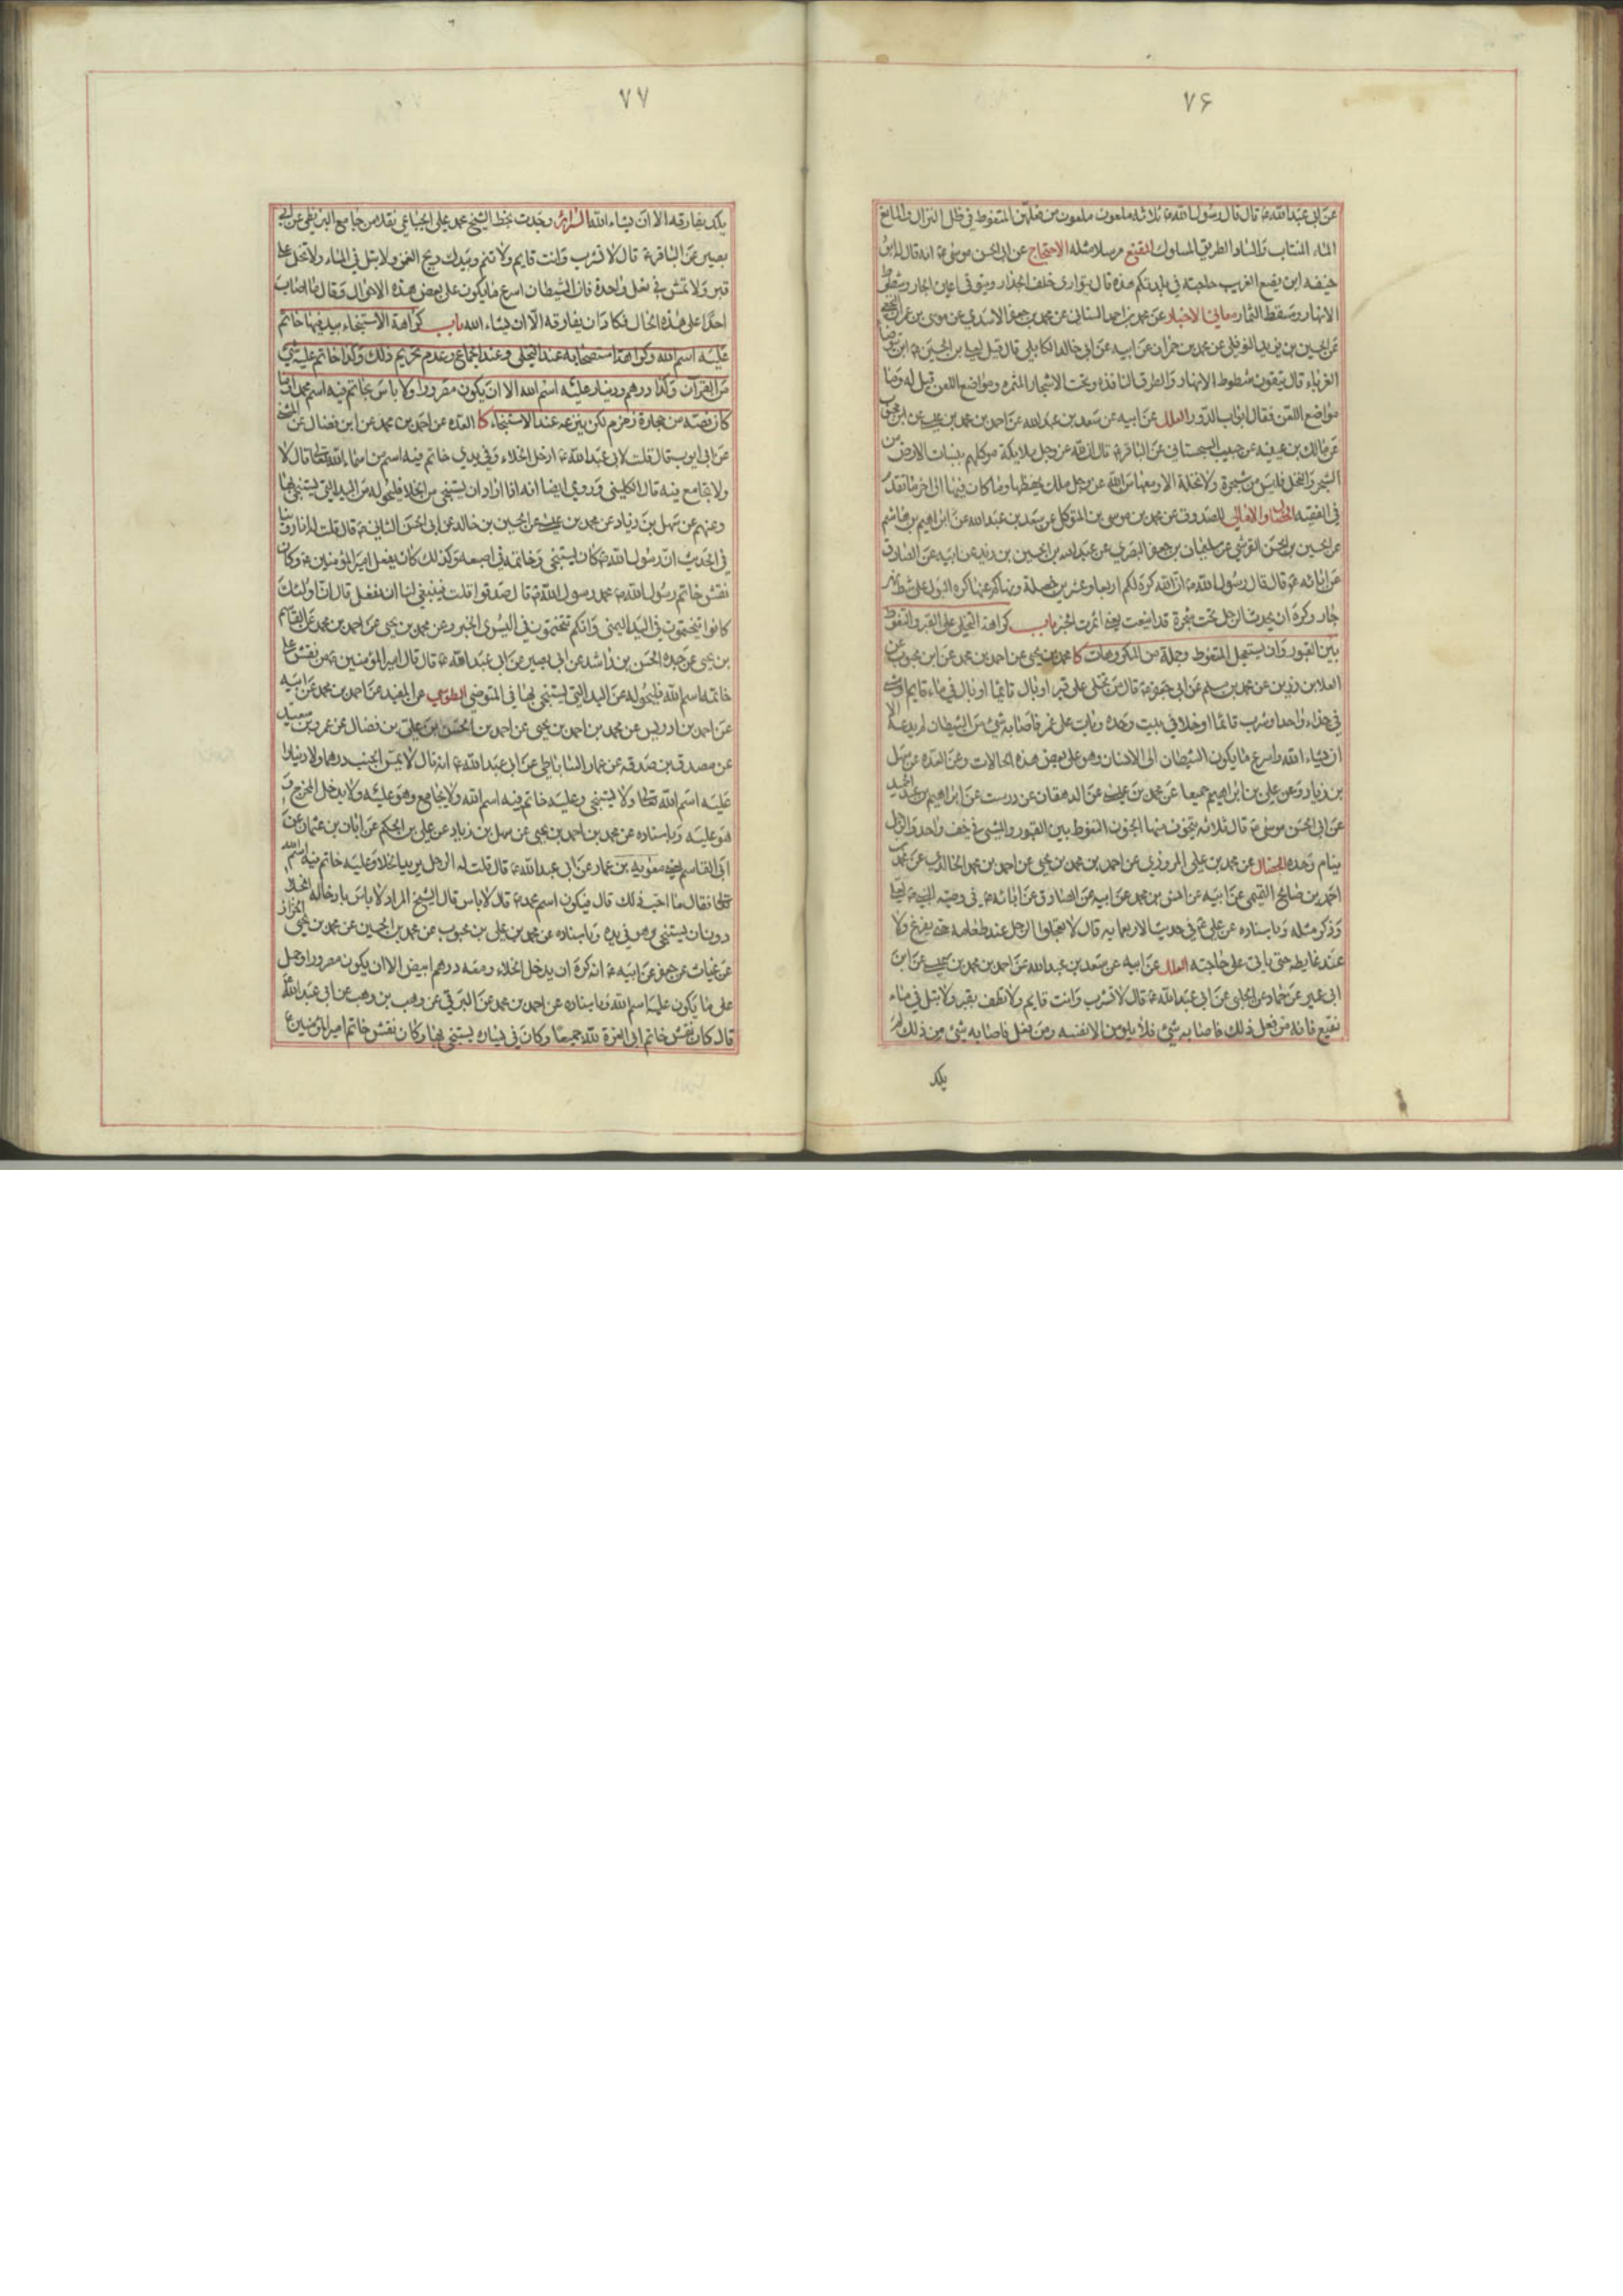 ٧۶
عن ابي عبد الله ع قال قال رسول الله ص ثلاثه ملعون ملعون من فعلهن المتغوط في ظل النزال والمانع
الماء المنتاب والساد الطريق المسلوك المقنع مرسلا مثله الاحتجاج عن ابي الحسن موسى ع انه قال له ابو
حنيفه اين يضع الغريب حاجته في بلدتكم هذه قال يتوارى خلف الجدار ويتوقى اعين الجار وشطوط
الانهار ومسقط الثمار معاني الاخبار عن محمد بن احمد السناني عن محمد بن جعفر الاسدي عن موسى بن عمران النخعي
عن الحسين بن يزيد النوفلي عن محمد بن حمران عن ابيه عن ابي خالد الكابلي قال قيل لعلي بن الحسين ع اين يتوضا
الغرباء قال يتقون شطوط الانهار والطرق النافذه وتحت الاشجار المثمره ومواضع اللعن قيل له وما
مواضع اللعن فقال ابواب الدور العلل عن ابيه عن سعد بن عبد الله عن احمد بن محمد بن عيسى عن ابن محبوب
عن مالك بن عيينه عن حبيب السجستاني عن الباقر ع قال ان لله عز وجل ملايكة موكلهم بنبات الارض من
الشجر والنخل فليس من شجرة ولا نخلة الا ومعها من الله عز وجل ملك يحفظها وما كان فيها الى اخر ما تقدم
في الفقيه الخصال والامالي للصدوق عن محمد بن موسى بن المتوكل عن سعد بن عبد الله عن ابراهيم بن هاشم
عن الحسين بن الحسن القرشي عن سليمان بن جعفر البصري عن عبد الله بن الحسين بن زيد عن ابيه عن الصادق
عن ابائه ع قال قال رسول الله ص ان الله كره لكم اربعا وعشرين خصلة وساق عنها كره البول على شط نهر
جار وكره ان يحدث الرجل تحت شجرة قد اينعت يعني اثمرت الخبر باب كراهة التخلي على القبر والتغوط
بين القبور وان يستعجل المتغوط وجملة من المكروهات كا محمد بن يحيى عن احمد بن محمد عن ابن محبوب عن
العلا بن رزين عن محمد بن مسلم عن ابي جعفر ع قال من تخلى على قبر او بال قائما او بال في ماء قايم او مشى
في حذاء واحد او شرب قائما او خلا في بيت وحده وبات على غمر فاصابه شيء من الشيطان لم يدعه الا
ان يشاء الله واسرع ما يكون الشيطان الى الانسان وهو على بعض هذه الحالات وعن العده عن سهل
بن زياد وعن علي بن ابراهيم جميعا عن محمد بن عيسى عن الدهقان عن درست عن ابراهيم بن عبد الحميد
عن ابي الحسن موسى ع قال ثلاثه يتخوف منها الجنون التغوط بين القبور والمشي في خف واحد والرجل
ينام وحده الخصال عن محمد بن علي المروزي عن احمد بن محمد بن يحيى عن احمد بن محمد الخالدي عن محمد بن
احمد بن صالح التميمي عن ابيه عن انس بن محمد عن ابيه عن الصادق عن ابائه ع في وصية النبي ص لعلي
وذكر مثله وباسناده عن علي ع في حديث الاربعمايه قال لا تعجلوا الرجل عند طعامه حتى يفرغ ولا
عند غايطه حتى ياتي على حاجته العلل عن ابيه عن سعد بن عبد الله عن احمد بن محمد بن عيسى عن ابن
ابي عمير عن حماد عن الحلبي عن ابي عبد الله ع قال لا تشرب وانت قايم ولا تطف بقبر ولا تبل في ماء
نقيع فانه من فعل ذلك فاصابه شيء فلا يلومن الا نفسه ومن فعل فاصابه شيء من ذلك لم
يكد
٧٧
يكد يفارقه الا ان يشاء الله السرائر وجدت بخط الشيخ محمد علي الجباعي نقله من جامع البزنطي عن ابي
بصير عن الباقر ع قال لا تشرب وانت قايم ولا تنم وبيدك ريح الغمر ولا تبل في الماء ولا تخل على
قبر ولا تمش في نعل واحدة فان الشيطان اسرع ما يكون على بعض هذه الاحوال وقال ما اصاب
احدا على هذه الحال فكاد ان يفارقه الا ان يشاء الله باب كراهة الاستنجاء بيد فيها خاتم
عليه اسم الله وكراهة استصحابه عند التخلي وعند الجماع وعدم تحريم ذلك وكذا خاتم عليه شيء
من القران وكذا درهم ودينار عليه اسم الله الا ان يكون مصرورا ولا باس بخاتم فيه اسم محمد او ما
كان فصه من حجارة زمزم لكن ينزعه عند الاستنجاء كا العده عن احمد بن محمد عن ابن فضال عن
عن ابي ايوب قال قلت لابي عبد الله ع ادخل الخلاء وفي يدي خاتم فيه اسم من اسماء الله تعالى قال لا
ولا تجامع فيه قال الكليني وروي ايضا انه اذا اراد ان يستنجي من الخلاء فليحوله من اليد التي يستنجي بها
وعنهم عن سهل بن زياد عن محمد بن عيسى عن الحسين بن خالد عن ابي الحسن الثاني ع قال قلت له انا روينا
في الحديث ان رسول الله ص كان يستنجي وخاتمه في اصبعه وكذلك كان يفعل امير المؤمنين ع وكان
نقش خاتم رسول الله ص محمد رسول الله ص قال صدقوا قلت فينبغي لنا ان نفعل قال ان اولئك
كانوا يتختمون في اليد اليمنى وانكم تتختمون في اليسرى الخبر وعن محمد بن يحيى عن احمد بن محمد عن القاسم
بن يحيى عن جده الحسن بن راشد عن ابي بصير عن ابي عبد الله ع قال قال امير المؤمنين ع من نقش على
خاتمه اسم الله فليحوله عن اليد التي يستنجي بها في المتوضى الطوسي عن المفيد عن احمد بن محمد عن ابيه
عن احمد بن ادريس عن محمد بن احمد بن يحيى عن احمد بن الحسن بن علي بن فضال عن عمرو بن سعيد
عن مصدق بن صدقه عن عمار الساباطي عن ابي عبد الله ع انه قال لا يمس الجنب درهما ولا دينارا
عليه اسم الله تعالى ولا يستنجي وعليه خاتم فيه اسم الله ولا يجامع وهو عليه ولا يدخل المخرج و
هو عليه وباسناده عن محمد بن احمد بن يحيى عن سهل بن زياد عن علي بن الحكم عن ابان بن عثمان عن
ابي القاسم يعني معويه بن عمار عن ابي عبد الله ع قال قلت له الرجل يريد الخلاء وعليه خاتم فيه اسم الله
تعالى فقال ما احب ذلك قال فيكون اسم محمد ص قال لا باس قال الشيخ المراد لا باس بادخاله الخلاء
دون ان يستنجي وهو في يده وباسناده عن محمد بن علي بن محبوب عن محمد بن الحسين عن محمد بن يحيى الخزاز
عن غياث عن جعفر عن ابيه ع انه كره ان يدخل الخلاء ومعه درهم ابيض الا ان يكون مصرورا وحمل
على ما يكون عليه اسم الله وباسناده عن احمد بن محمد عن البرقي عن وهب بن وهب عن ابي عبد الله ع
قال كان نقش خاتم ابي العزة لله جميعا وكان في يساره يستنجي بها وكان نقش خاتم امير المؤمنين ع